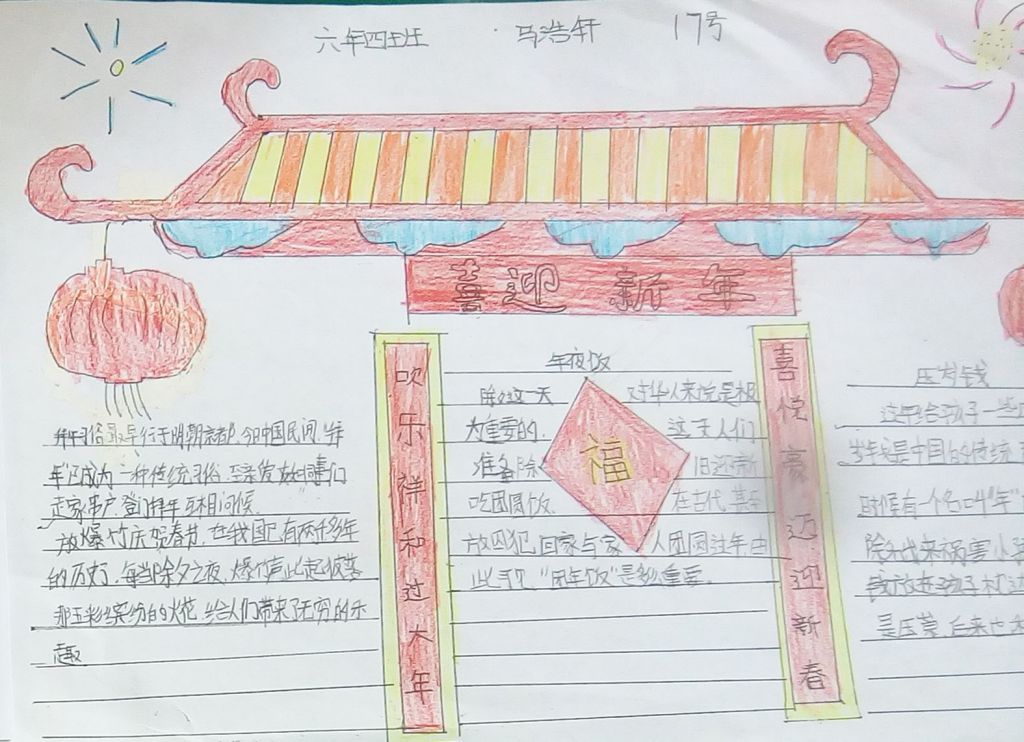 六年四班 马浩轩 17号
喜迎新年
吹乐祥和过大年
喜悦豪迈迎新春
拜年习俗最早行于明朝京都,今日中国民间,"拜
年"已成为一种传统习俗,至亲发友们
走家串户,登门拜年,互相问候。
放爆竹庆贺春节,在我国已有两千多年
的历史,每当除夕之夜,爆竹声此起彼落
那五彩缤纷的火花,给人们带来了无穷的乐
趣
年夜饭
除夕这一天 对华人来说是极
为重要的, 这一天人们
准备除 旧迎新
吃团圆饭, 在古代,甚至
放囚犯,回家与家 人团圆过年,由
此可见,"团年饭"是多重要
福
压岁钱
这年给孩子一些
岁钱是中国的传统
时候有一个名叫"年"
除夕出来祸害小孩
钱放进孩子枕边
后来也